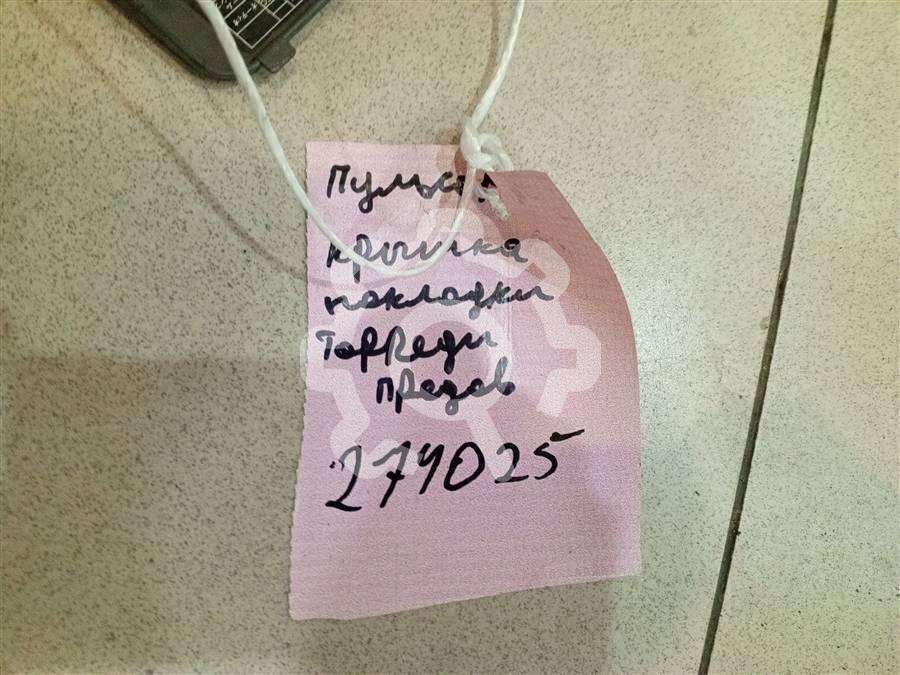 Пульсар
крышка
накладки
Торпеди
предов
274025